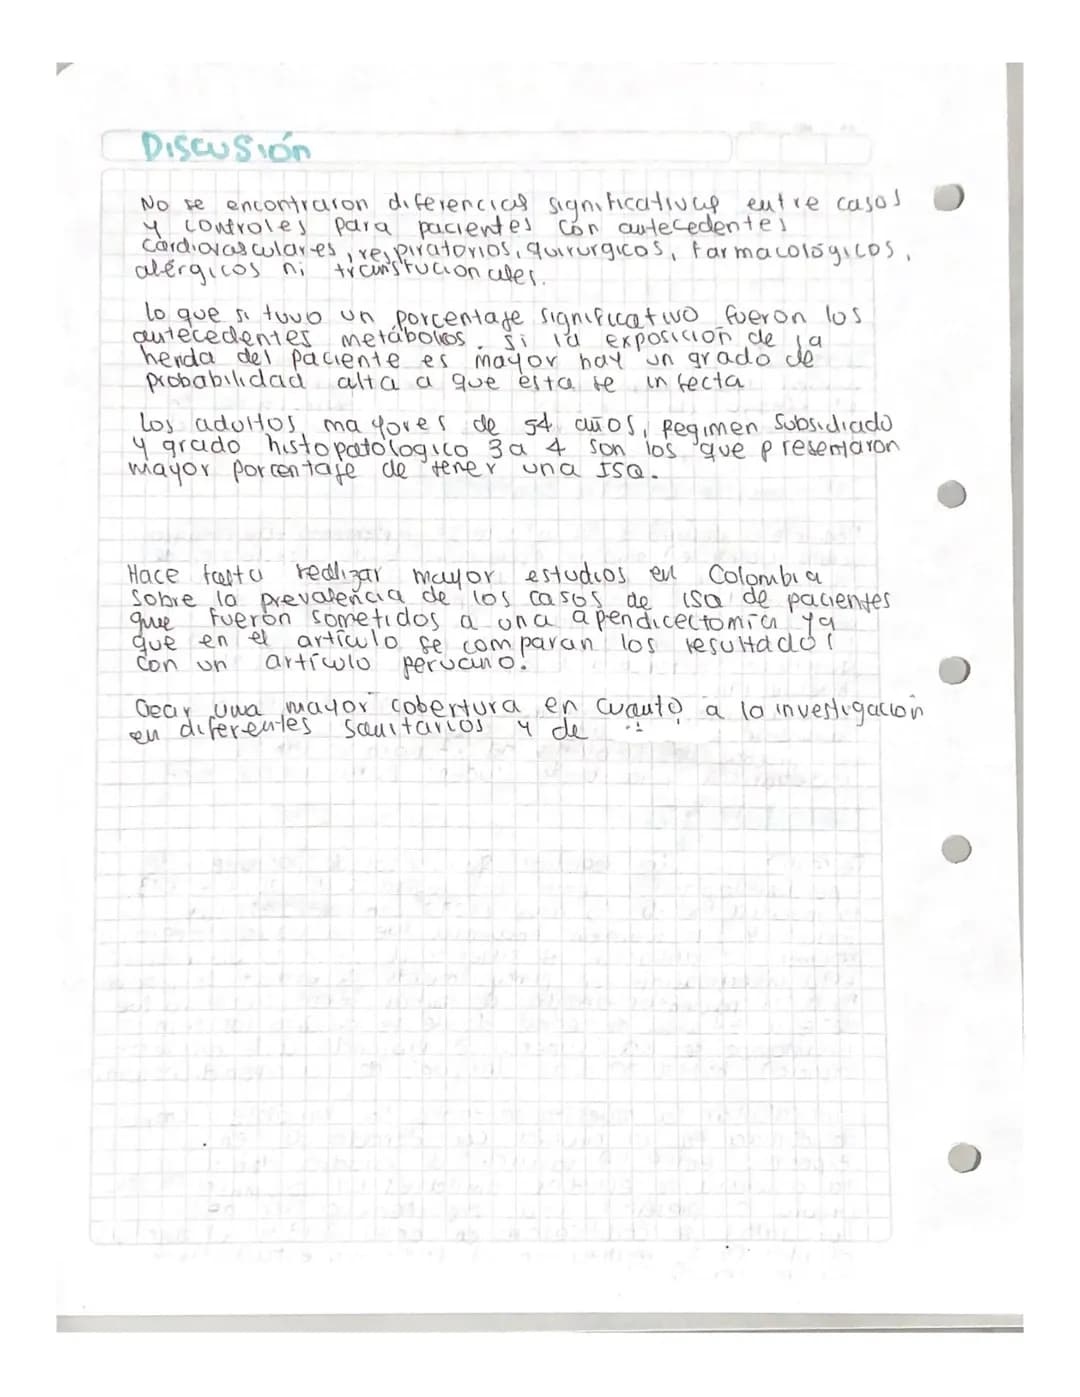 Discusión
No se encontraron diferencias significativas entre casos
y controles para pacientes con antecedentes
cardiovasculares, respiratorios, quirurgicos, farmacológicos,
alérgicos ni transfucionales.
lo que si tuvo un porcentaje significativo fueron los
antecedentes metábolicos. si la exposición de la
herida del paciente es mayor hay un grado de
probabilidad alta a que esta se infecta
los adultos mayores de 54 años, Regimen Subsidiado
y grado histopatologico 3 a 4 son los que presentaron
mayor porcentaje de tener una ISQ.
Hace falta realizar mayor estudios en Colombia
sobre la prevalencia de los casos de ISQ de pacientes
que fueron sometidos a una apendicectomía ya
que en el artículo se comparan los resultados
con un artículo peruano.
Crear una mayor cobertura en cuanto a la investigación
en diferentes sanitarios y de